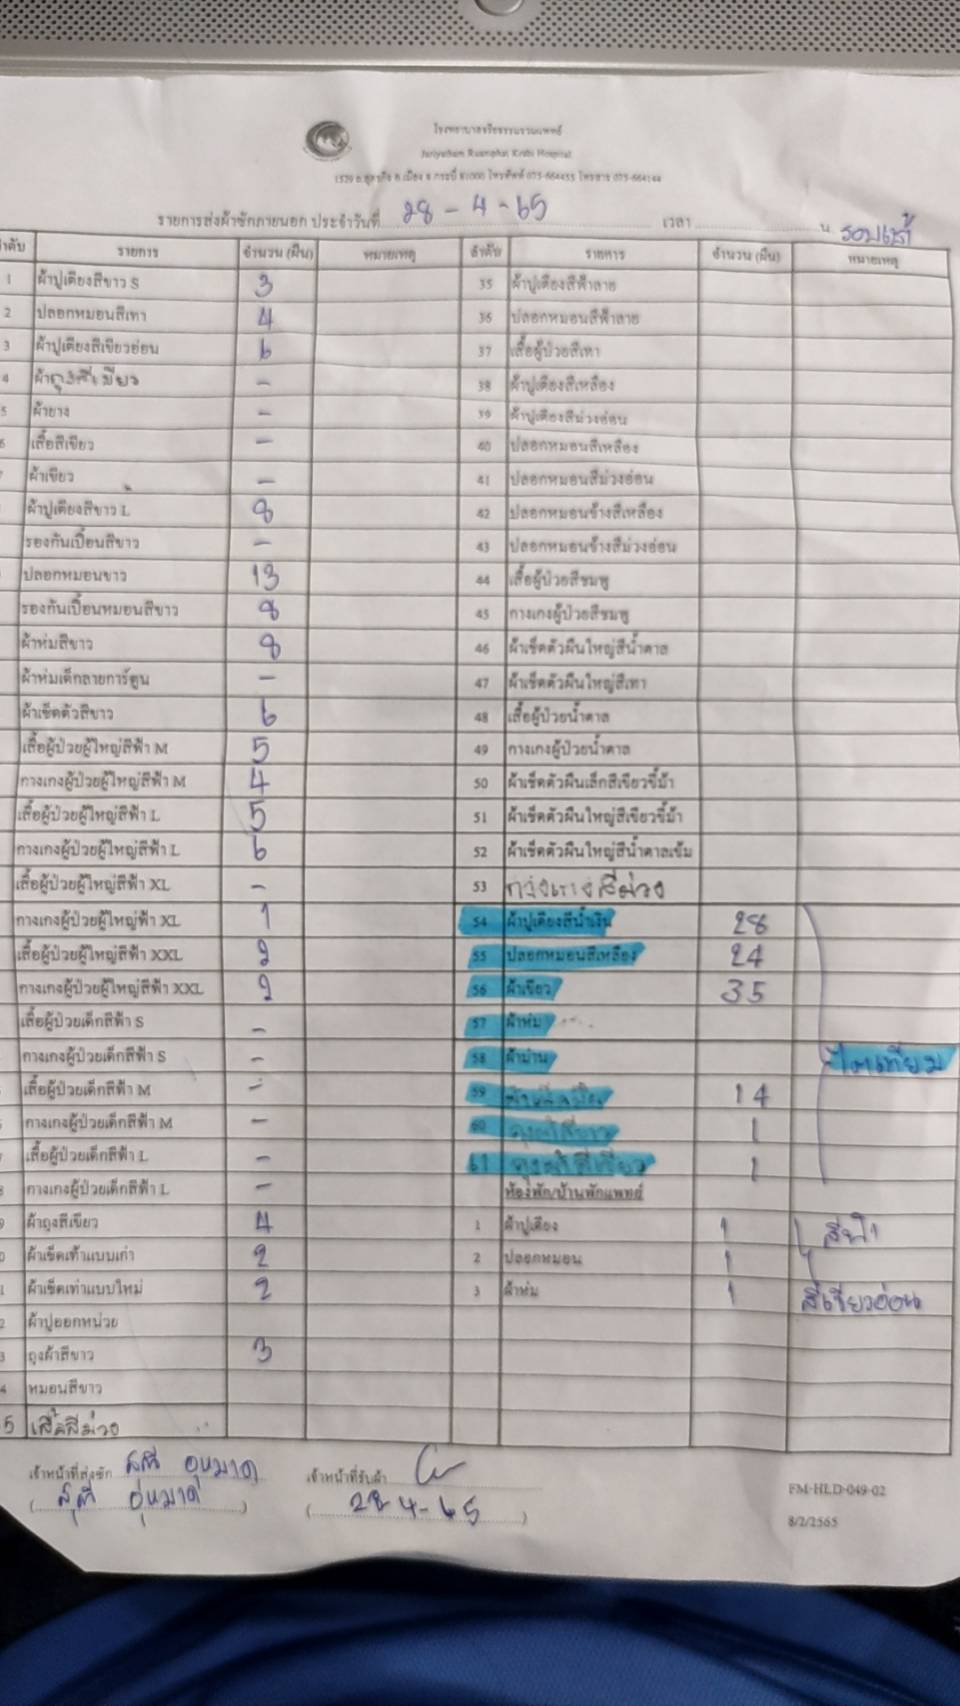 โรงพยาบาลจริยธรรมรวมแพทย์
Jariyatham Ruamphat Krabi Hospital
1529 ถ.อุตรกิจ อ.เมือง จ.กระบี่ 81000 โทรศัพท์ 075-664455 โทรสาร 075-664144
รายการส่งผ้าซักภายนอก ประจำวันที่ 28-4-65 เวลา น. รอบเช้า
ลำดับ รายการ จำนวน (ผืน) หมายเหตุ ลำดับ รายการ จำนวน (ผืน) หมายเหตุ
1 ผ้าปูเตียงสีขาว S 3 35 ผ้าปูเตียงสีฟ้าลาย
2 ปลอกหมอนสีเทา 4 36 ปลอกหมอนสีฟ้าลาย
3 ผ้าปูเตียงสีเขียวอ่อน 6 37 เสื้อผู้ป่วยสีเทา
4 ผ้าถุงสีเขียว - 38 ผ้าปูเตียงสีเหลือง
5 ผ้ายาง - 39 ผ้าปูเตียงสีม่วงอ่อน
6 เสื้อสีเขียว - 40 ปลอกหมอนสีเหลือง
7 ผ้าเขียว - 41 ปลอกหมอนสีม่วงอ่อน
ผ้าปูเตียงสีขาว L 8 42 ปลอกหมอนข้างสีเหลือง
รองกันเปื้อนสีขาว - 43 ปลอกหมอนข้างสีม่วงอ่อน
ปลอกหมอนขาว 13 44 เสื้อผู้ป่วยสีชมพู
รองกันเปื้อนหมอนสีขาว 8 45 กางเกงผู้ป่วยสีชมพู
ผ้าห่มสีขาว 8 46 ผ้าเช็ดตัวผืนใหญ่สีน้ำตาล
ผ้าห่มเด็กลายการ์ตูน - 47 ผ้าเช็ดตัวผืนใหญ่สีเทา
ผ้าเช็ดตัวสีขาว 6 48 เสื้อผู้ป่วยน้ำตาล
เสื้อผู้ป่วยผู้ใหญ่สีฟ้า M 5 49 กางเกงผู้ป่วยน้ำตาล
กางเกงผู้ป่วยผู้ใหญ่สีฟ้า M 4 50 ผ้าเช็ดตัวผืนเล็กสีเขียวขี้ม้า
เสื้อผู้ป่วยผู้ใหญ่สีฟ้า L 5 51 ผ้าเช็ดตัวผืนใหญ่สีเขียวขี้ม้า
กางเกงผู้ป่วยผู้ใหญ่สีฟ้า L 6 52 ผ้าเช็ดตัวผืนใหญ่สีน้ำตาลเข้ม
เสื้อผู้ป่วยผู้ใหญ่สีฟ้า XL - 53 กางเกงสีม่วง
กางเกงผู้ป่วยผู้ใหญ่ฟ้า XL 1 54 ผ้าปูเตียงสีน้ำเงิน 28
เสื้อผู้ป่วยผู้ใหญ่สีฟ้า XXL 2 55 ปลอกหมอนสีเหลือง 24
กางเกงผู้ป่วยผู้ใหญ่สีฟ้า XXL 2 56 ผ้าเขียว 35
เสื้อผู้ป่วยเด็กสีฟ้า S - 57 ผ้าห่ม
กางเกงผู้ป่วยเด็กสีฟ้า S - 58 ผ้าม่าน ไตเทียม
เสื้อผู้ป่วยเด็กสีฟ้า M - 59 14
กางเกงผู้ป่วยเด็กสีฟ้า M - 60 ถุงผ้าสีขาว 1
เสื้อผู้ป่วยเด็กสีฟ้า L - 61 ถุงผ้าสีเขียว 1
กางเกงผู้ป่วยเด็กสีฟ้า L - ห้องพัก/บ้านพักแพทย์
ผ้าถุงสีเขียว 4 1 ผ้าปูเตียง 1 สีฟ้า
ผ้าเช็ดเท้าแบบเก่า 2 2 ปลอกหมอน 1
ผ้าเช็ดเท้าแบบใหม่ 2 3 ผ้าห่ม 1 สีเขียวอ่อน
ผ้าปูออกหน่วย
ถุงผ้าสีขาว 3
หมอนสีขาว
5 เสื้อสีม่วง
เจ้าหน้าที่ส่งซัก เจ้าหน้าที่รับผ้า
28-4-65
FM-HLD-049-02
8/2/2565